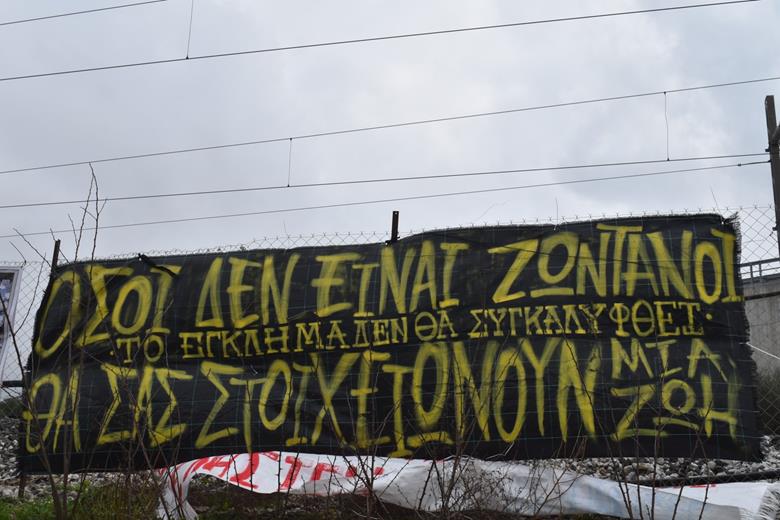 ΟΣΟΙ ΔΕΝ ΕΙΝΑΙ ΖΩΝΤΑΝΟΙ
·ΤΟ ΕΓΚΛΗΜΑ ΔΕΝ ΘΑ ΣΥΓΚΑΛΥΦΘΕΙ·
ΘΑ ΣΑΣ ΣΤΟΙΧΕΙΩΝΟΥΝ ΜΙΑ ΖΩΗ